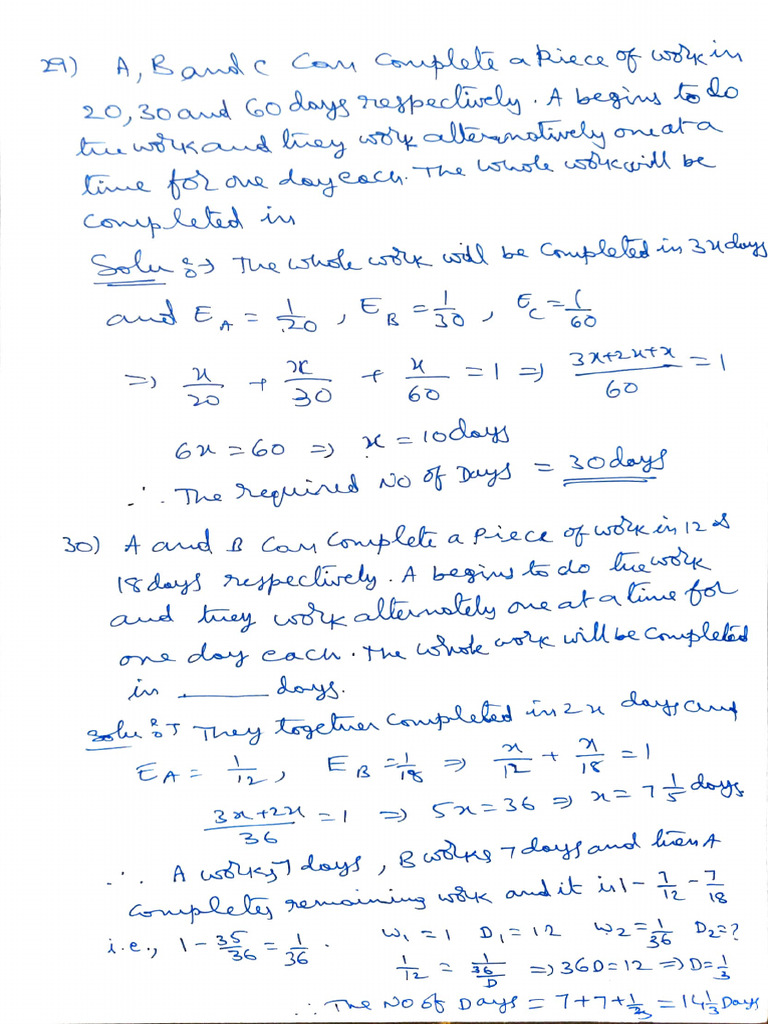 29) A, B and C Can Complete a Piece of work in
20, 30 and 60 days respectively. A begins to do
the work and they work alternatively one at a
time for one day each. The whole work will be
completed in
Solu :→ The whole work will be Completed in 3x days
and E_A = 1/20, E_B = 1/30, E_C = 1/60
⇒ x/20 + x/30 + x/60 = 1 ⇒ (3x+2x+x)/60 = 1
6x = 60 ⇒ x = 10 days
∴ The required No of Days = 30 days
30) A and B Can Complete a Piece of work in 12 &
18 days respectively. A begins to do the work
and they work alternately one at a time for
one day each. The whole work will be completed
in ______ days.
Solu :→ They together completed in 2x days and
E_A = 1/12, E_B = 1/18 ⇒ x/12 + x/18 = 1
(3x+2x)/36 = 1 ⇒ 5x = 36 ⇒ x = 7 1/5 days
∴ A works 7 days, B works 7 days and then A
completes remaining work and it is 1 - 7/12 - 7/18
i.e., 1 - 35/36 = 1/36. W1 = 1 D1 = 12 W2 = 1/36 D2 = ?
1/12 = (1/36)/D ⇒ 36D = 12 ⇒ D = 1/3
∴ The No of Days = 7 + 7 + 1/3 = 14 1/3 Days